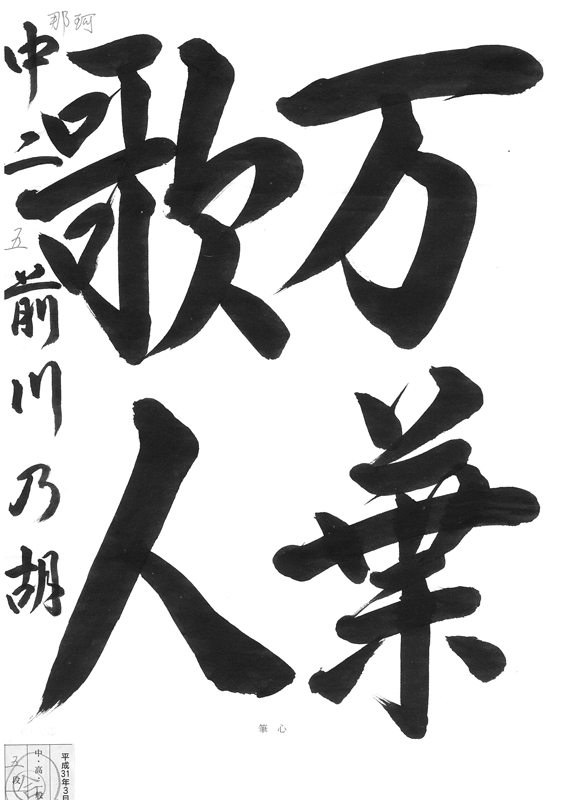 万葉
歌人
那珂
中二 前川乃胡
五
心筆
平成31年3月
中・高・一般
五段